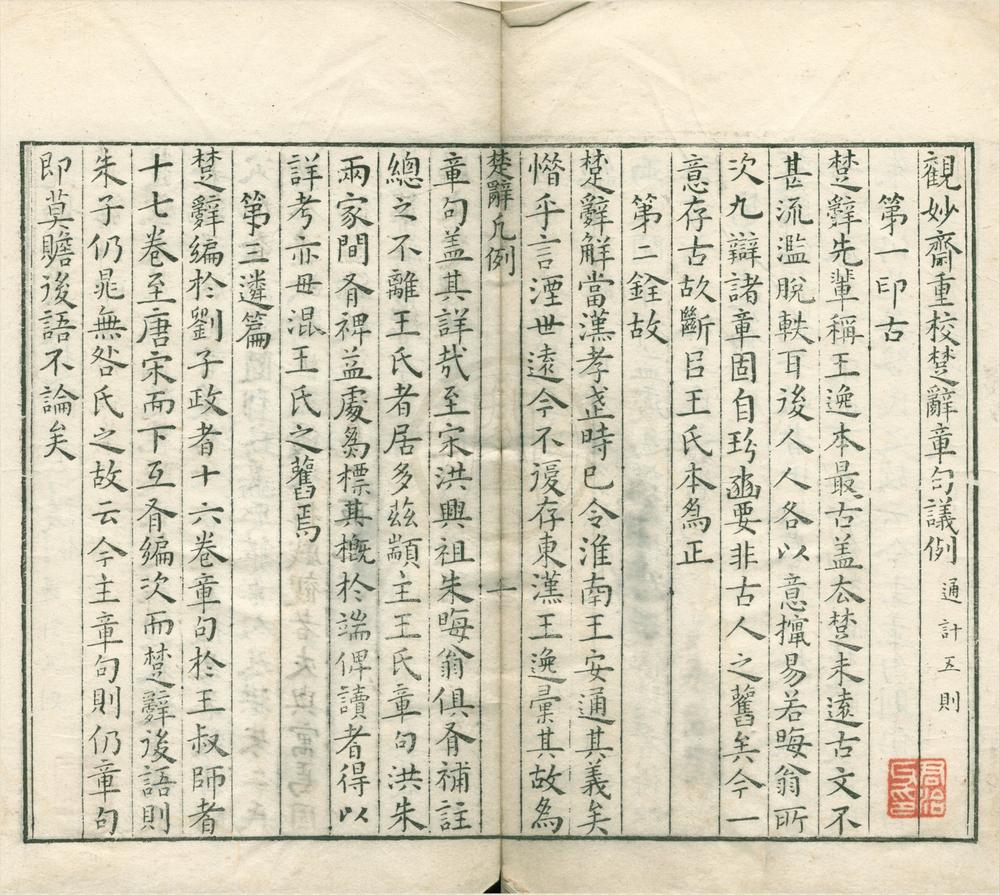 觀妙齋重校楚辭章句議例 通計五則
第一印古
楚辭先輩稱王逸本最古盖厺楚未遠古文不
甚流濫脫軼耳後人人各以意擅易若晦翁所
次九辯諸章固自玢豳要非古人之舊矣今一
意存古故斷㠯王氏本為正
第二銓故
楚辭解當漢孝武時已令淮南王安通其義矣
惜乎言湮世遠今不復存東漢王逸彙其故為
楚辭凡例
一
章句盖其詳哉至宋洪興祖朱晦翁俱有補註
總之不離王氏者居多茲顓主王氏章句洪朱
兩家間有裨益處為標其概於端俾讀者得以
詳考亦毋混王氏之舊焉
第三遴篇
楚辭編於劉子政者十六卷章句於王叔師者
十七卷至唐宋而下互有編次而楚辭後語則
朱子仍晁無咎氏之故云今主章句則仍章句
即莫贍後語不論矣